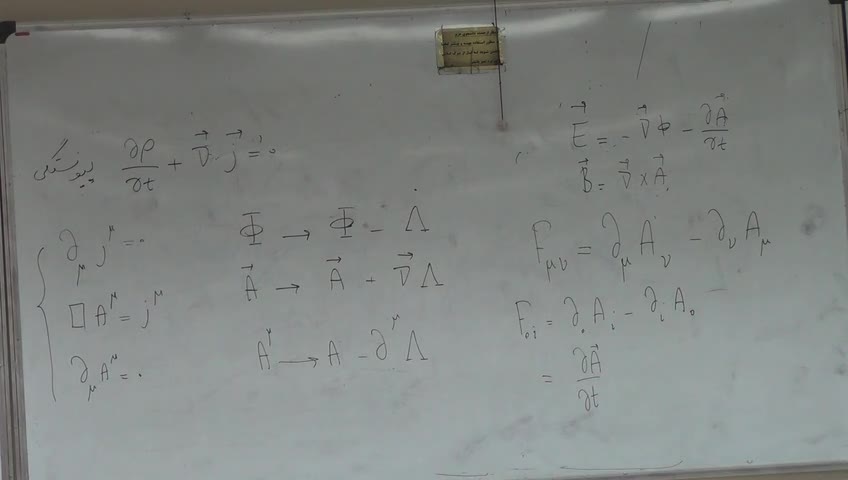 پیوستگی ∂ρ/∂t + ∇⃗ · j⃗ = 0
∂_μ j^μ = 0
□ A^μ = j^μ
∂_μ A^μ = 0
Φ → Φ − Λ̇
A⃗ → A⃗ + ∇⃗Λ
A^μ → A − ∂^μ Λ
E⃗ = − ∇⃗Φ − ∂A⃗/∂t
B⃗ = ∇⃗ × A⃗
F_μν = ∂_μ A_ν − ∂_ν A_μ
F_0i = ∂_0 A_i − ∂_i A_0
= ∂A⃗/∂t